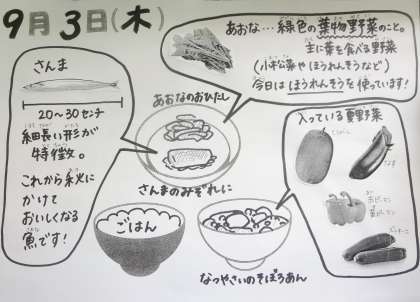 9月3日(木)
あおな…緑色の葉物野菜のこと。
主に葉を食べる野菜
(小松菜やほうれんそうなど)
今日はほうれんそうを使っています!
さんま
20〜30センチ
細長い形が
特徴。
これから秋に
かけて
おいしくなる
魚です!
あおなのおひたし
さんまのみぞれに
ごはん
なつやさいのそぼろあん
入っている夏野菜
なす
ズッキーニ